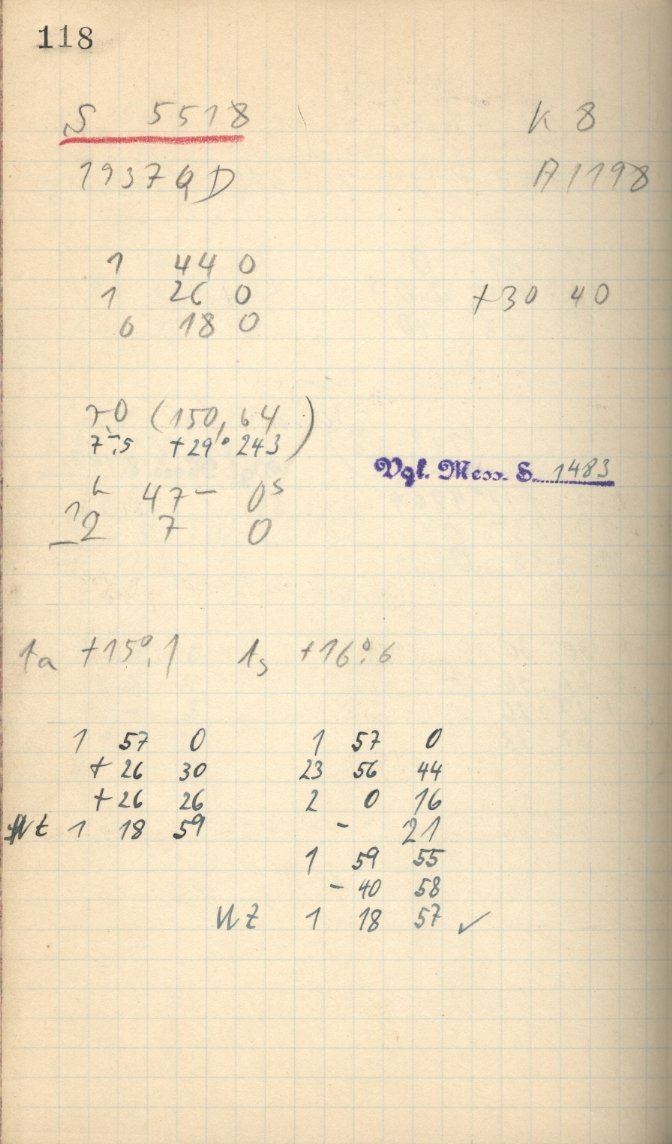 118
S 5518 K 8
1937 QD A1198
1 44 0
1 26 0 +30 40
0 18 0
(150,64)
+29° 243
Vgl. Mess. S. 1483
47– 0s
7 0
ta +15°,1 ts +16°,6
1 57 0 1 57 0
+26 30 23 56 44
+26 26 2 0 16
WZ 1 18 59 – 21
1 59 55
– 40 58
WZ 1 18 57 ✓